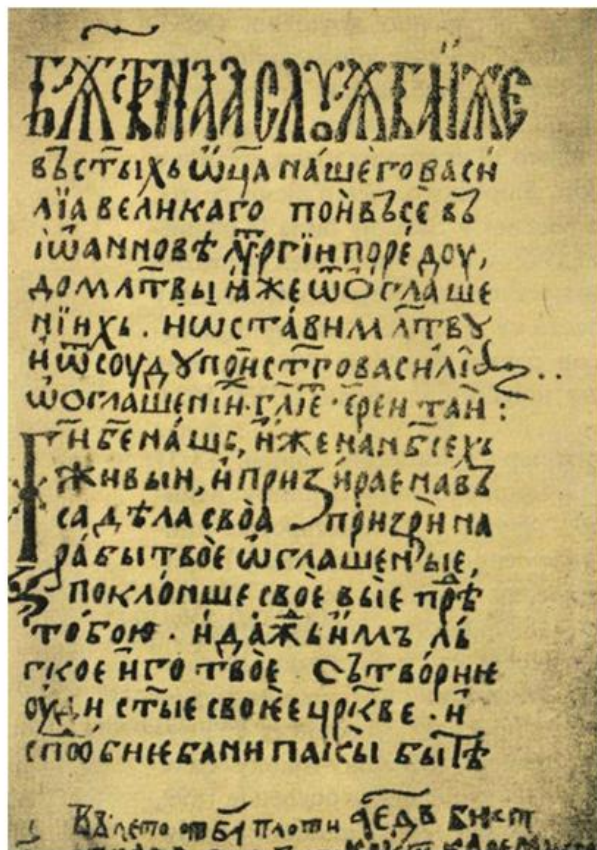 бжⷭ҇тв҃наа слꙋжба и҆́же
въ ст҃ыхь ѿц҃а на́шего̀ васи
лїа вели́каго пои҆̀ въсѐ въ
іѡ҆а́нновѣ лѵ҃ргїи поре́доу,
до мл҃твы и҆́же ѿ ѻ҆глаше
нїихь. и ѡ҆ста́вим мл҃твꙋ
и҆ ѿсоудꙋ пои҆ ст҃го васи́лїа..
ѡ҆глаше́нїи. гл҃іе ере́и таи҆:
Ги҃ бе҃ на́шь, и҆́же на нб҃сехъ
живыи, и҆ призи́рае на въ
са дѣ́ла своа̀ призрѝ на
ра́бы твоѐ ѡ҆глаше́н'ые,
покло́нше своѐ выѐ прѣⷣ
то́бою. и҆ да́жⷣь и҆̀мъ ль
гкое и҆̀го твоѐ сътво́ри ѥ
оу́ди ст҃ые своѥ̀е црк҃ве. и҆
спⷣоби ѥ бани пакы бытїѣ
Въ лето ѿ ба҃ плоти